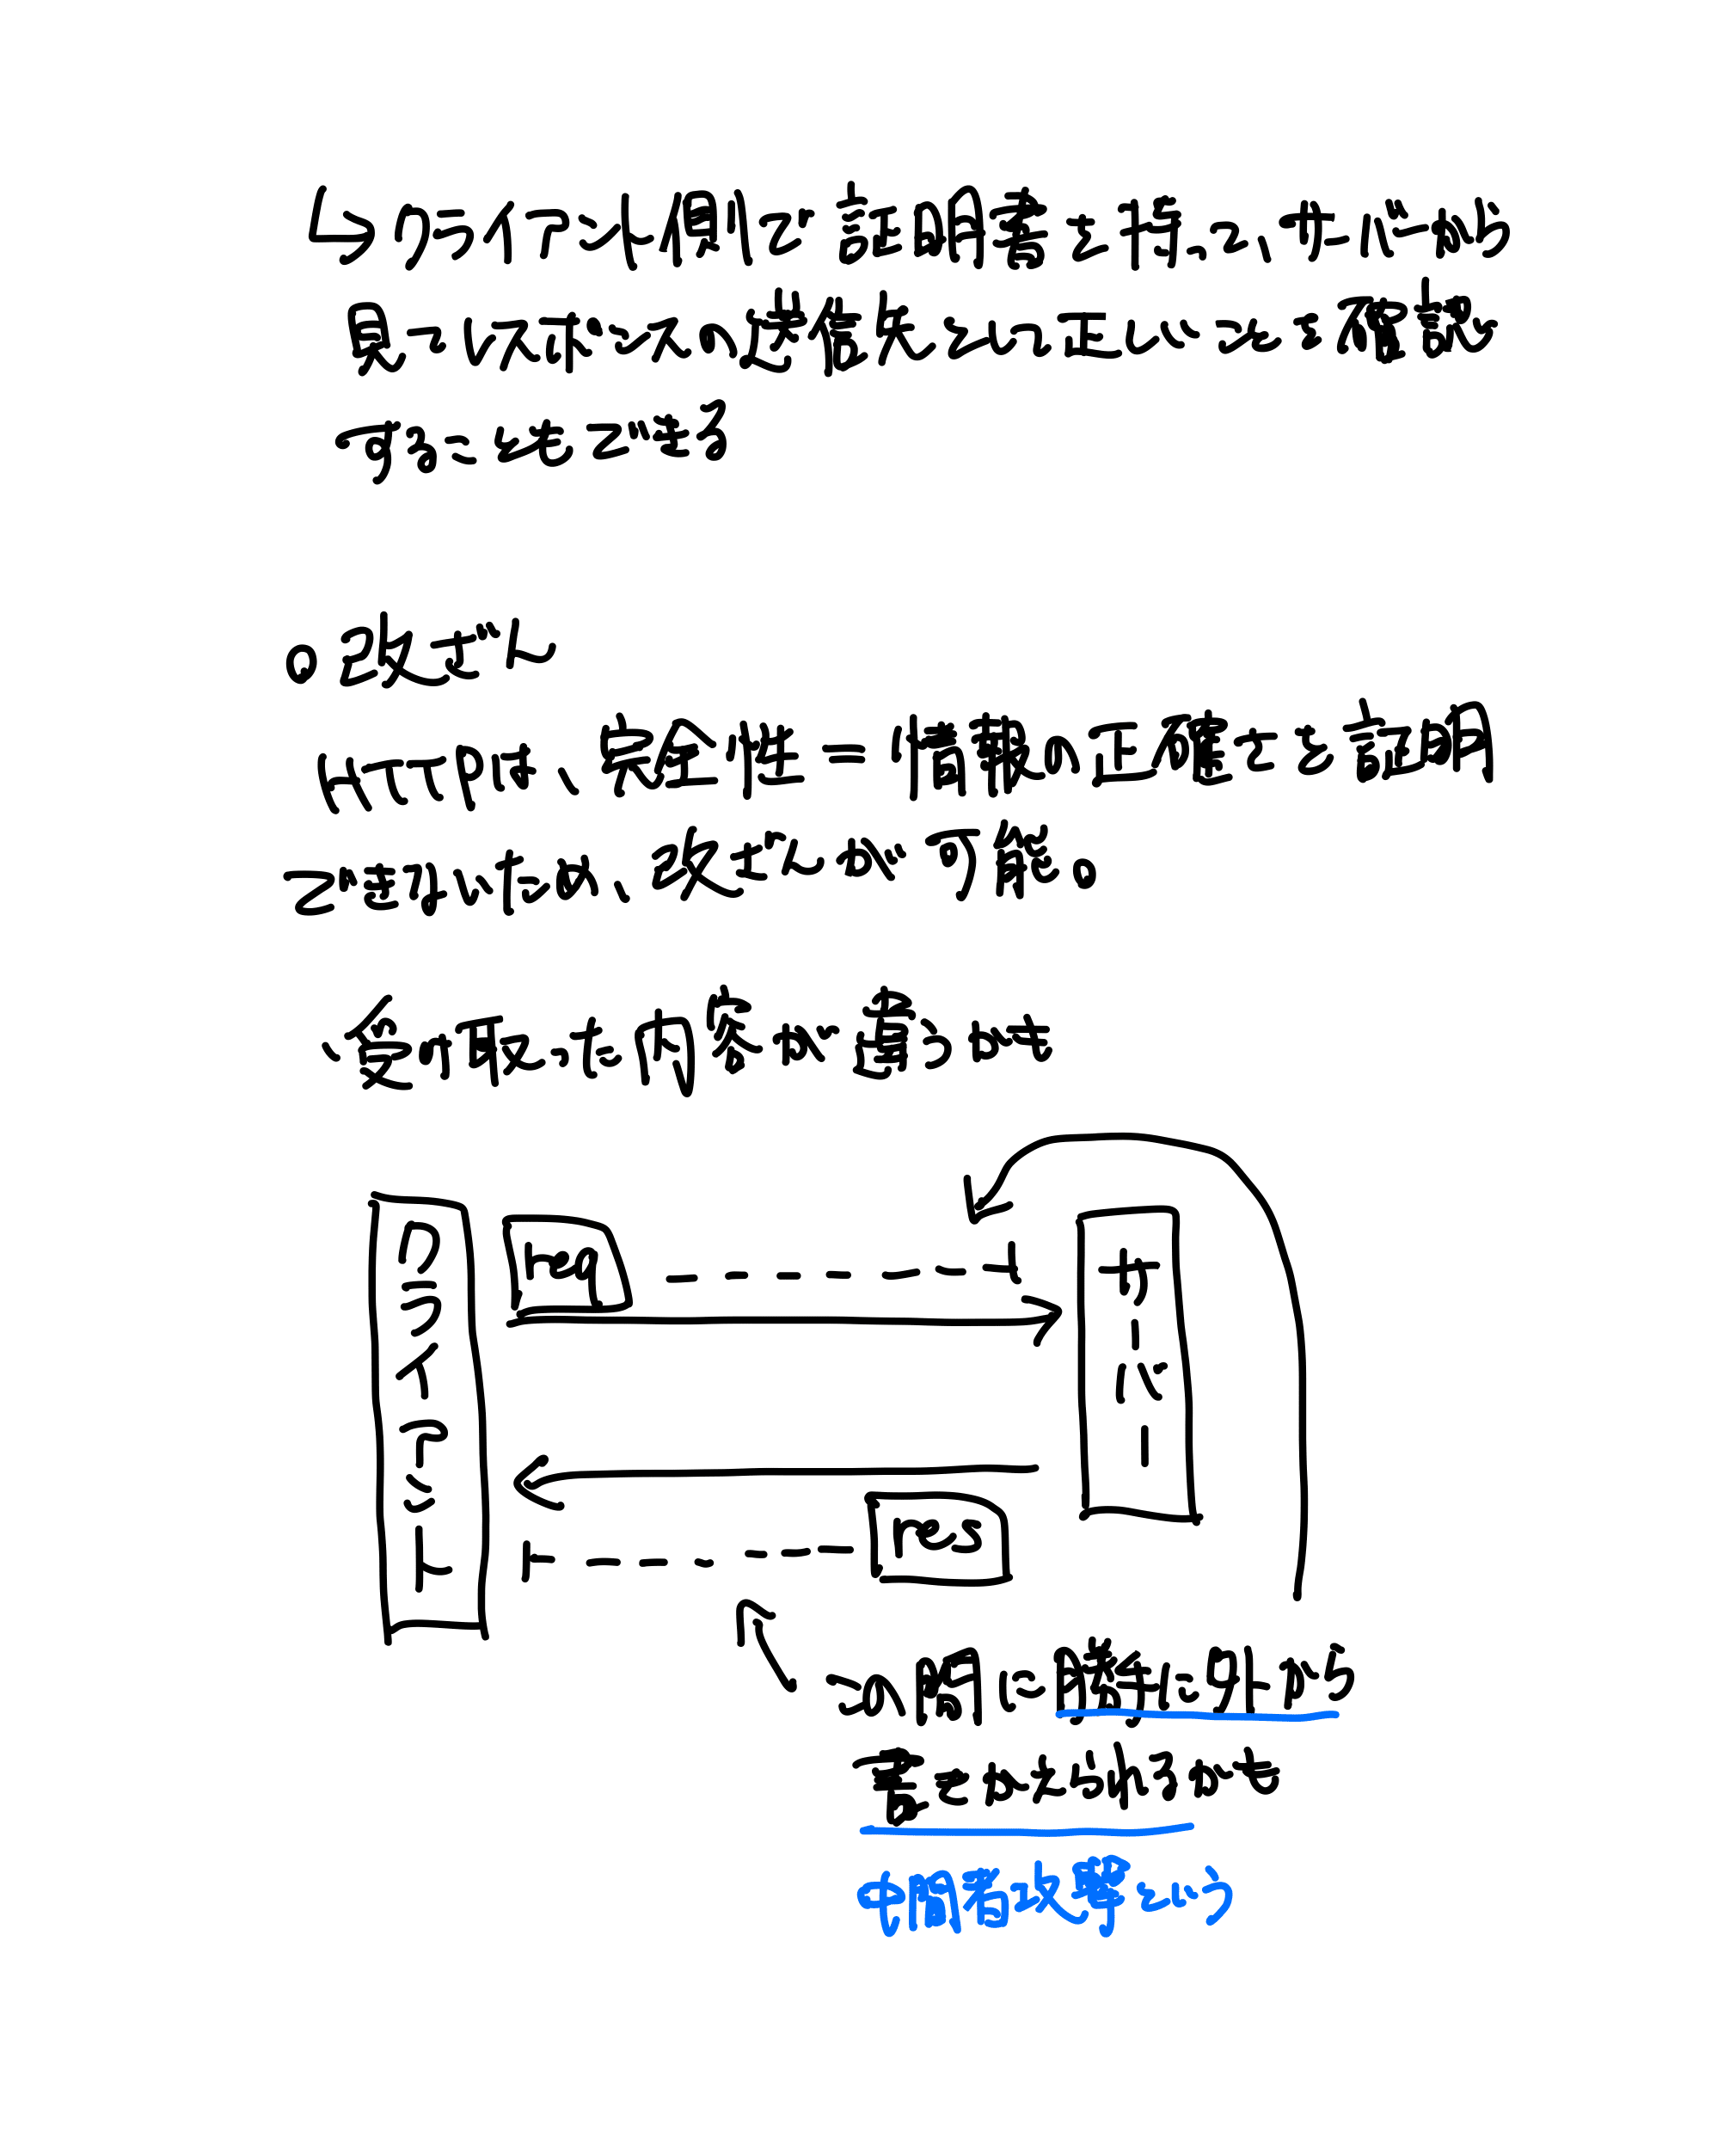 ↳クライアント側で証明書を持って、サーバーから
見てリクエストの送信先として正しいことを確認
することもできる
○改ざん
HTTPは、完全性＝情報の正確さを証明
できないため、改ざんが可能。
・受け取った内容が違うかも
クライアント
req
サーバー
res
→この間に勝手に外から
書きかえられるかも
中間者攻撃という